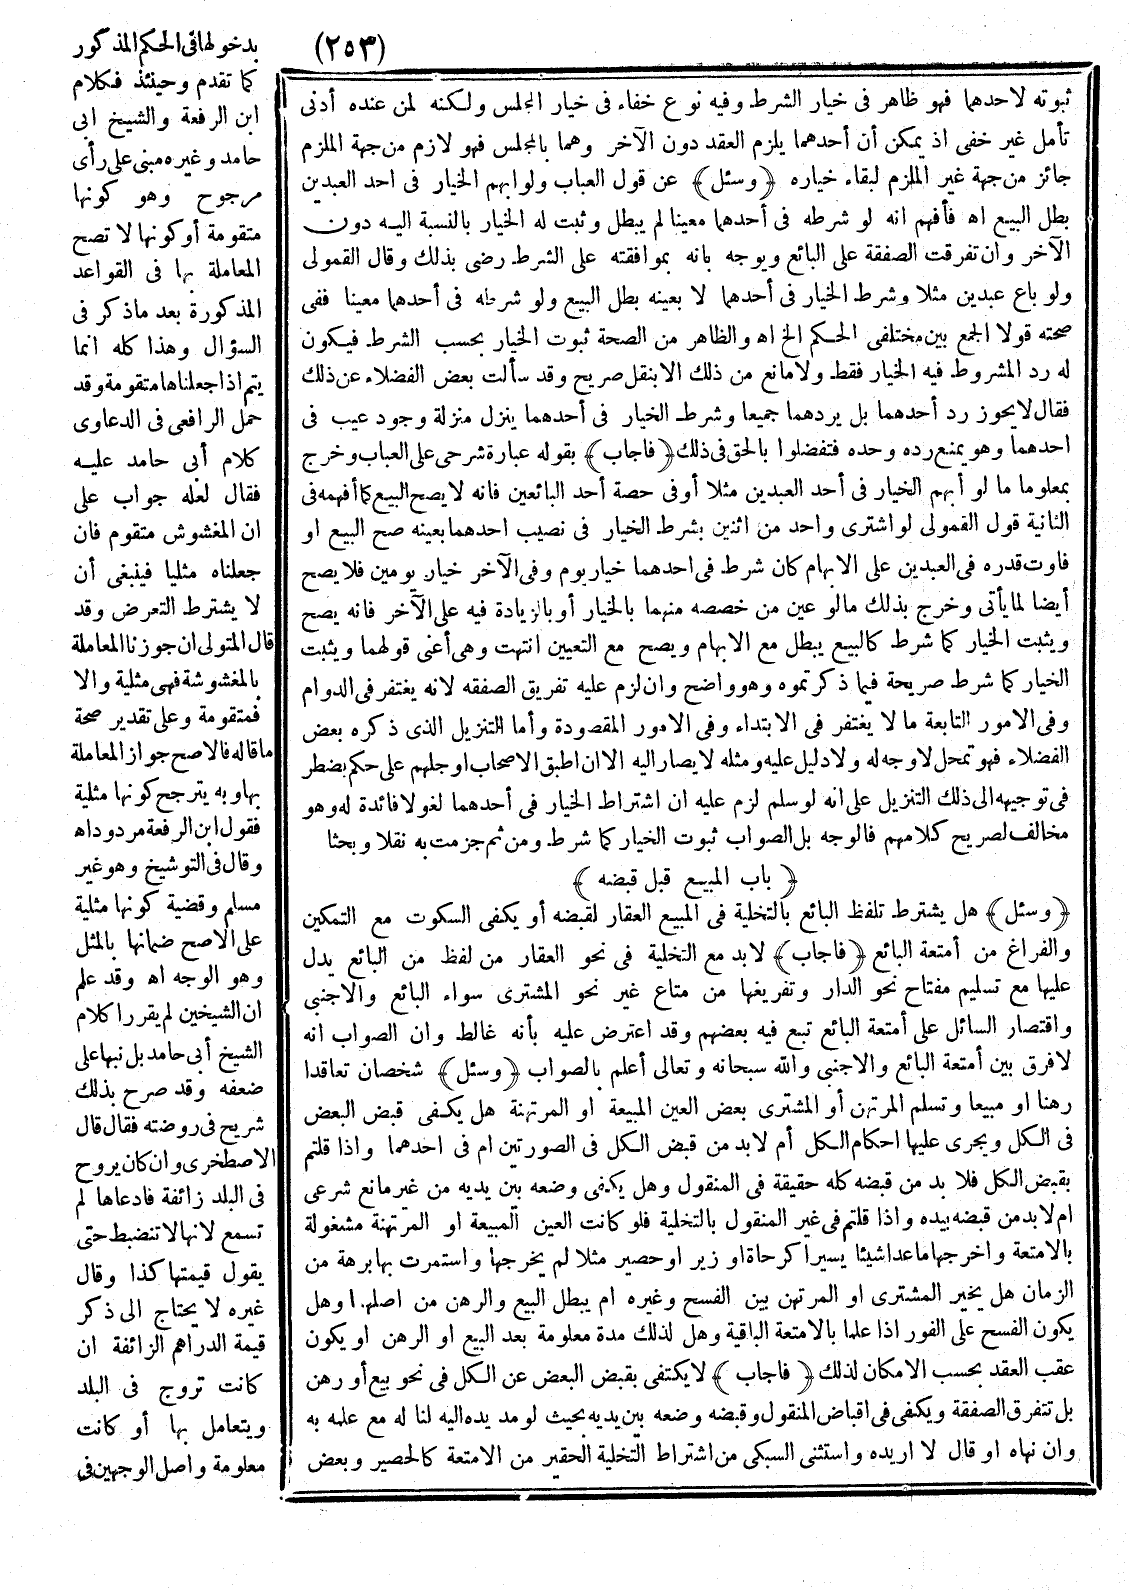 (٢٥٣)
ثبوته لاحدهما فهو ظاهر فى خيار الشرط وفيه نوع خفاء فى خيار المجلس ولكنه لمن عنده أدنى
تأمل غير خفى اذ يمكن أن أحدهما يلزم العقد دون الآخر وهما بالمجلس فهو لازم من جهة الملزم
جائز من جهة غير الملزم لبقاء خياره ﴿وسئل﴾ عن قول العباب ولو ابهم الخيار فى احد العبدين
بطل البيع اه فأفهم انه لو شرطه فى أحدهما معينا لم يبطل وثبت له الخيار بالنسبة اليه دون
الآخر وان تفرقت الصفقة على البائع ويوجه بانه بموافقته على الشرط رضى بذلك وقال القمولى
ولو باع عبدين مثلا وشرط الخيار فى أحدهما لا بعينه بطل البيع ولو شرطه فى أحدهما معينا ففى
صحته قولا الجمع بين مختلفى الحكم الخ اه والظاهر من الصحة ثبوت الخيار بحسب الشرط فيكون
له رد المشروط فيه الخيار فقط ولامانع من ذلك الابنقل صريح وقد سألت بعض الفضلاء عن ذلك
فقال لايجوز رد أحدهما بل يردهما جميعا وشرط الخيار فى أحدهما ينزل منزلة وجود عيب فى
احدهما وهو يمنع رده وحده فتفضلوا بالحق فى ذلك ﴿فاجاب﴾ بقوله عبارة شرحى على العباب وخرج
بمعلوما ما لو أبهم الخيار فى أحد العبدين مثلا أو فى حصة أحد البائعين فانه لا يصح البيع كما أفهمه فى
الثانية قول القمولى لو اشترى واحد من اثنين بشرط الخيار فى نصيب احدهما بعينه صح البيع او
فاوت قدره فى العبدين على الابهام كان شرط فى احدهما خيار يوم وفى الآخر خيار يومين فلا يصح
أيضا لما يأتى وخرج بذلك مالو عين من خصصه منهما بالخيار أو بالزيادة فيه على الآخر فانه يصح
ويثبت الخيار كما شرط كالبيع يبطل مع الابهام ويصح مع التعيين انتهت وهى أعنى قولهما ويثبت
الخيار كما شرط صريحة فيما ذكرتموه وهو واضح وان لزم عليه تفريق الصفقة لانه يغتفر فى الدوام
وفى الامور التابعة ما لا يغتفر فى الابتداء وفى الامور المقصودة وأما التنزيل الذى ذكره بعض
الفضلاء فهو تمحل لاوجه له ولا دليل عليه ومثله لا يصار اليه الا ان اطبق الاصحاب اوجلهم على حكم يضطر
فى توجيهه الى ذلك التنزيل على انه لو سلم لزم عليه ان اشتراط الخيار فى أحدهما لغو لا فائدة له وهو
مخالف لصريح كلامهم فالوجه بل الصواب ثبوت الخيار كما شرط ومن ثم جزمت به نقلا وبحثا
﴿باب المبيع قبل قبضه﴾
﴿وسئل﴾ هل يشترط تلفظ البائع بالتخلية فى المبيع العقار لقبضه أو يكفى السكوت مع التمكين
والفراغ من أمتعة البائع ﴿فاجاب﴾ لابد مع التخلية فى نحو العقار من لفظ من البائع يدل
عليها مع تسليم مفتاح نحو الدار وتفريغها من متاع غير نحو المشترى سواء البائع والاجنبى
واقتصار السائل على أمتعة البائع تبع فيه بعضهم وقد اعترض عليه بأنه غالط وان الصواب انه
لا فرق بين أمتعة البائع والاجنبى والله سبحانه وتعالى أعلم بالصواب ﴿وسئل﴾ شخصان تعاقدا
رهنا او مبيعا وتسلم المرتهن أو المشترى بعض العين المبيعة او المرتهنة هل يكفى قبض البعض
فى الكل ويجرى عليها احكام الكل أم لابد من قبض الكل فى الصورتين ام فى احدهما واذا قلتم
بقبض الكل فلا بد من قبضه كله حقيقة فى المنقول وهل يكفى وضعه بين يديه من غير مانع شرعى
ام لابد من قبضه بيده واذا قلتم فى غير المنقول بالتخلية فلو كانت العين المبيعة او المرتهنة مشغولة
بالامتعة واخرجها ماعدا شيئا يسيرا كرحاة او زير او حصير مثلا لم يخرجها واستمرت بها برهة من
الزمان هل يخير المشترى او المرتهن بين الفسخ وغيره ام يبطل البيع والرهن من اصلهما وهل
يكون الفسخ على الفور اذا علما بالامتعة الباقية وهل لذلك مدة معلومة بعد البيع او الرهن او يكون
عقب العقد بحسب الامكان لذلك ﴿فاجاب﴾ لايكتفى بقبض البعض عن الكل فى نحو بيع أو رهن
بل تتفرق الصفقة ويكفى فى اقباض المنقول وقبضه وضعه بين يديه بحيث لو مد يده اليه لنا له مع علمه به
وان نهاه او قال لا اريده واستثنى السبكى من اشتراط التخلية الحقير من الامتعة كالحصير وبعض
بدخولها فى الحكم المذكور
كما تقدم وحينئذ فكلام
ابن الرفعة والشيخ ابى
حامد وغيره مبنى على رأى
مرجوح وهو كونها
متقومة أو كونها لا تصح
المعاملة بها فى القواعد
المذكورة بعد ماذكر فى
السؤال وهذا كله انما
يتم اذا جعلناها متقومة وقد
حمل الرافعى فى الدعاوى
كلام أبى حامد عليه
فقال لعله جواب على
ان المغشوش متقوم فان
جعلناه مثليا فينبغى أن
لا يشترط التعرض وقد
قال المتولى ان جوزنا المعاملة
بالمغشوشة فهى مثلية والا
فمتقومة وعلى تقدير صحة
ماقاله فالاصح جواز المعاملة
بها وبه يترجح كونها مثلية
فقول ابن الرفعة مردود اه
وقال فى التوشيح وهو غير
مسلم وقضية كونها مثلية
على الاصح ضمانها بالمثل
وهو الوجه اه وقد علم
ان الشيخين لم يقررا كلام
الشيخ أبى حامد بل نبها على
ضعفه وقد صرح بذلك
شريح فى روضته فقال قال
الاصطخرى وان كان يروح
فى البلد زائفة فادعاها لم
تسمع لانها لاتنضبط حتى
يقول قيمتها كذا وقال
غيره لا يحتاج الى ذكر
قيمة الدراهم الزائفة ان
كانت تروج فى البلد
ويتعامل بها أو كانت
معلومة واصل الوجهين فى